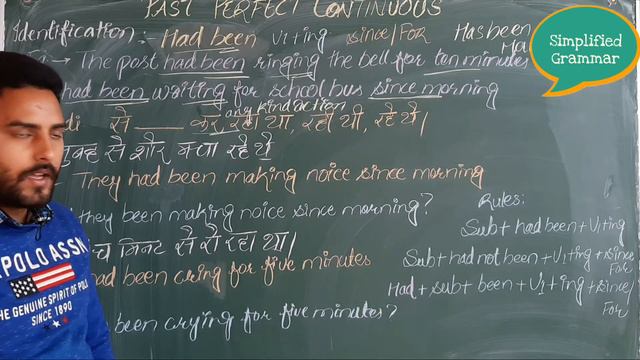 PAST PERFECT CONTINUOUS
Identification:- Had been V1ting since/For Has been
The post had been ringing the bell for ten minutes
had been writing for school bus since morning
any kind action
से ___ कर रहा था, रही थी, रहे थे।
सुबह से शोर मचा रहे थे
They had been making noice since morning
they been making noice since morning?
मिनट से रो रहा था।
had been cring for five minutes
been crying for five minutes?
Rules:
Sub+ had been + V1ting
Sub+ had not been + V1ting + since
For
Had + sub+ been + V1 + ing + since/
For
Simplified
Grammar
POLO ASSN
THE GENUINE SPIRIT OF POLO
SINCE 1890